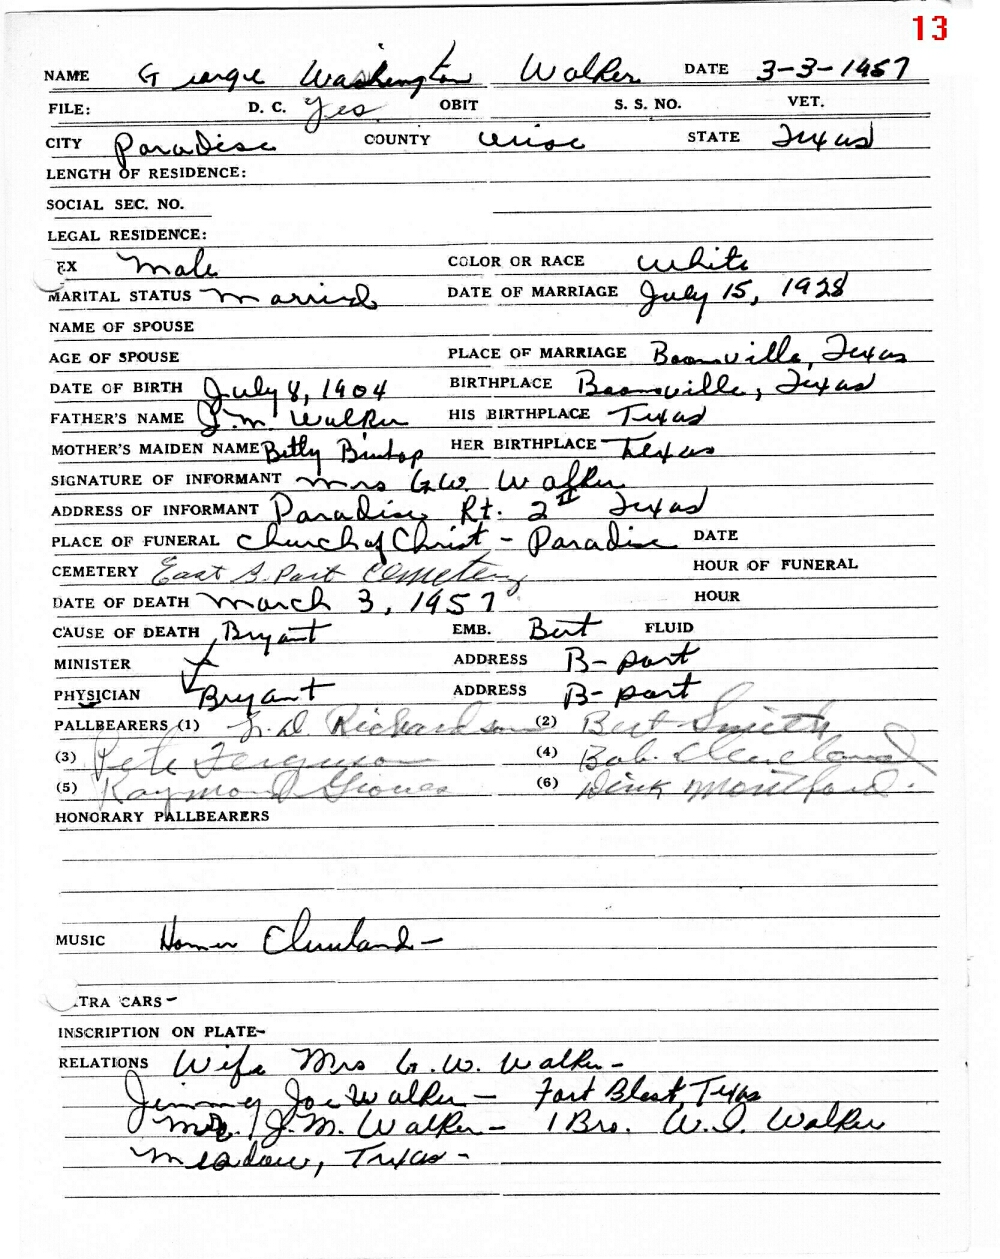 13
NAME George Washington Walker DATE 3-3-1957
FILE: D. C. Yes OBIT S. S. NO. VET.
CITY Paradise COUNTY Wise STATE Texas
LENGTH OF RESIDENCE:
SOCIAL SEC. NO.
LEGAL RESIDENCE:
EX Male COLOR OR RACE White
MARITAL STATUS Married DATE OF MARRIAGE July 15, 1928
NAME OF SPOUSE
AGE OF SPOUSE PLACE OF MARRIAGE Boonsville, Texas
DATE OF BIRTH July 8, 1904 BIRTHPLACE Boonsville, Texas
FATHER'S NAME J.M. Walker HIS BIRTHPLACE Texas
MOTHER'S MAIDEN NAME Betty HER BIRTHPLACE Texas
SIGNATURE OF INFORMANT Mrs G.W. Walker
ADDRESS OF INFORMANT Paradise Rt. 2 Texas
PLACE OF FUNERAL Church of Christ - Paradise DATE
CEMETERY East B. Port Cemetery HOUR OF FUNERAL
DATE OF DEATH March 3, 1957 HOUR
CAUSE OF DEATH Bryant EMB. Burt FLUID
MINISTER ADDRESS B-port
PHYSICIAN Bryant ADDRESS B-port
PALLBEARERS (1) D. Richardson (2) Bert Smith
(3) Pete Ferguson (4) Bob. Cleveland
(5) Raymond Groves (6) Dink Montford.
HONORARY PALLBEARERS
MUSIC Homer Cleveland -
TRA CARS-
INSCRIPTION ON PLATE-
RELATIONS Wife Mrs G.W. Walker -
Jimmy Joe Walker - Fort Blest, Texas
J.M. Walker - 1 Bro. W.I. Walker
Meadow, Texas -